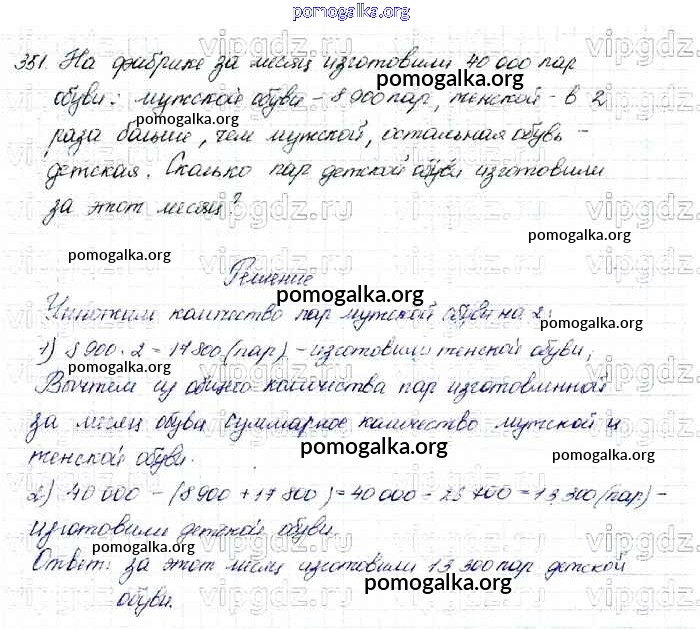 pomogalka.org
351. На фабрике за месяц изготовили 40 000 пар
pomogalka.org
обуви: мужской обуви - 8 900 пар, женской - в 2
pomogalka.org
раза больше, чем мужской, остальная обувь -
pomogalka.org
детская. Сколько пар детской обуви изготовили
за этот месяц?
pomogalka.org
pomogalka.org
Решение
pomogalka.org
Умножим количество пар мужской обуви на 2:
pomogalka.org
1) 8 900 · 2 = 17 800 (пар) - изготовили женской обуви;
pomogalka.org
Вычтем из общего количества пар изготовленной
за месяц обуви суммарное количество мужской и
pomogalka.org
женской обуви.
pomogalka.org
2) 40 000 - (8 900 + 17 800) = 40 000 - 26 700 = 13 300 (пар) -
изготовили детской обуви.
pomogalka.org
Ответ: за этот месяц изготовили 13 300 пар детской
pomogalka.org
обуви.
vipgdz.ru